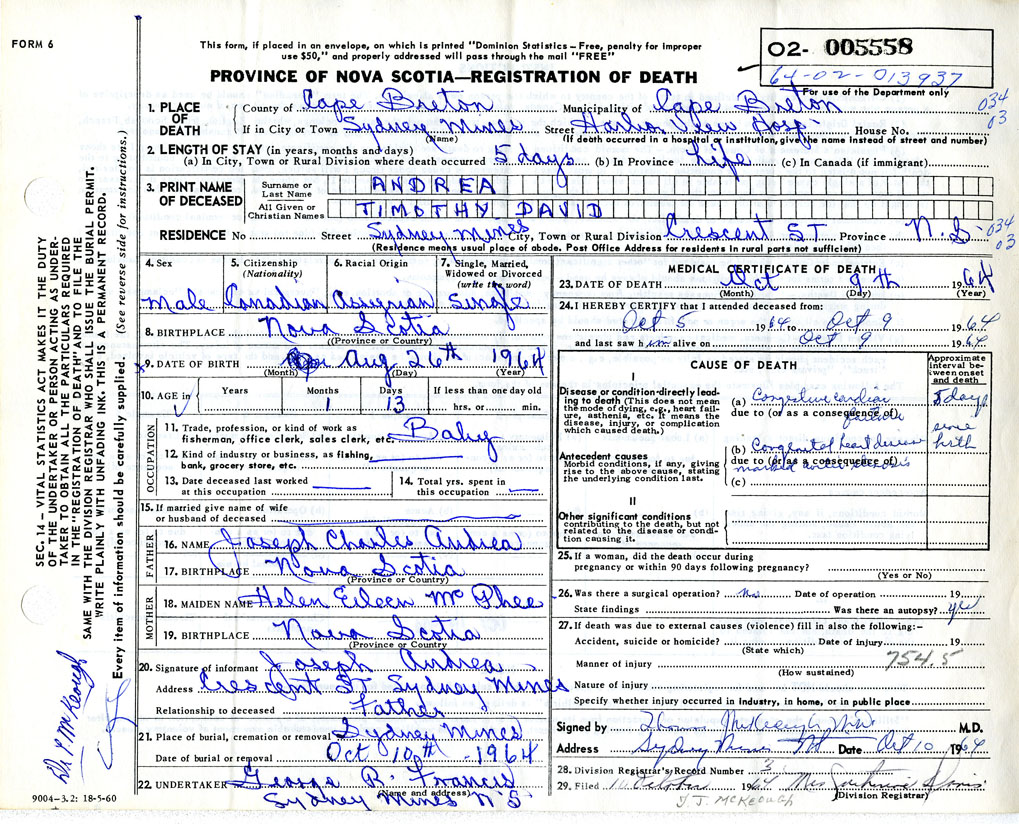 FORM 6
This form, if placed in an envelope, on which is printed "Dominion Statistics – Free, penalty for improper
use $50," and properly addressed will pass through the mail "FREE"
PROVINCE OF NOVA SCOTIA—REGISTRATION OF DEATH
O2- 005558
64-02-013937
For use of the Department only
034
03
1. PLACE OF DEATH
County of Cape Breton Municipality of Cape Breton
If in City or Town Sydney Mines Street Harbor View Hosp. House No.
(Name) (If death occurred in a hospital or institution, give the name instead of street and number)
2. LENGTH OF STAY (in years, months and days)
(a) In City, Town or Rural Division where death occurred 5 days (b) In Province Life (c) In Canada (if immigrant)
3. PRINT NAME OF DECEASED
Surname or Last Name ANDREA
All Given or Christian Names TIMOTHY DAVID
RESIDENCE No Street Sydney Mines City, Town or Rural Division Crescent ST Province N.S.
034
03
(Residence means usual place of abode. Post Office Address for residents in rural parts not sufficient)
4. Sex
Male
5. Citizenship (Nationality)
Canadian
6. Racial Origin
Assyrian
7. Single, Married, Widowed or Divorced (write the word)
Single
8. BIRTHPLACE Nova Scotia
(Province or Country)
9. DATE OF BIRTH Aug 26th 1964
(Month) (Day) (Year)
10. AGE in Years Months Days If less than one day old
1 13 hrs. or min.
OCCUPATION
11. Trade, profession, or kind of work as
fisherman, office clerk, sales clerk, etc. Baby
12. Kind of industry or business, as fishing,
bank, grocery store, etc.
13. Date deceased last worked
at this occupation
14. Total yrs. spent in
this occupation
15. If married give name of wife
or husband of deceased
FATHER
16. NAME Joseph Charles Andrea
17. BIRTHPLACE Nova Scotia
(Province or Country)
MOTHER
18. MAIDEN NAME Helen Eileen McPhee
19. BIRTHPLACE Nova Scotia
(Province or Country)
20. Signature of informant Joseph Andrea
Address Crescent ST Sydney Mines
Relationship to deceased Father
21. Place of burial, cremation or removal Sydney Mines
Date of burial or removal Oct 10th 1964
22. UNDERTAKER George R. Francis
(Name and address)
Sydney Mines N.S.
9004–3.2: 18-5-60
MEDICAL CERTIFICATE OF DEATH
23. DATE OF DEATH Oct 9th 1964
(Month) (Day) (Year)
24. I HEREBY CERTIFY that I attended deceased from:
Oct 5 1964 to Oct 9 1964
and last saw him alive on Oct 9 1964
CAUSE OF DEATH
Approximate interval between onset and death
I
Disease or condition directly leading to death (This does not mean the mode of dying, e.g., heart failure, asthenia, etc. It means the disease, injury, or complication which caused death.)
(a) Congestive cardiac failure 5 days
due to (or as a consequence of)
Antecedent causes
Morbid conditions, if any, giving rise to the above cause, stating the underlying condition last.
(b) Congenital heart disease since birth
due to (or as a consequence of)
(c)
II
Other significant conditions
contributing to the death, but not related to the disease or condition causing it.
25. If a woman, did the death occur during
pregnancy or within 90 days following pregnancy?
(Yes or No)
26. Was there a surgical operation? No Date of operation 19
State findings Was there an autopsy? yes
27. If death was due to external causes (violence) fill in also the following:–
Accident, suicide or homicide? Date of injury 19
(State which)
Manner of injury 754.5
(How sustained)
Nature of injury
Specify whether injury occurred in industry, in home, or in public place
Signed by M.D.
Address Sydney Mines Date Oct 10 1964
28. Division Registrar's Record Number 3
29. Filed October 1964
(Division Registrar)
T. J. McKEOUGH
SEC. 14 – VITAL STATISTICS ACT MAKES IT THE DUTY
OF THE UNDERTAKER OR PERSON ACTING AS UNDER-
TAKER TO OBTAIN ALL THE PARTICULARS REQUIRED
IN THE "REGISTRATION OF DEATH" AND TO FILE THE
SAME WITH THE DIVISION REGISTRAR WHO SHALL ISSUE THE BURIAL PERMIT.
WRITE PLAINLY WITH UNFADING INK. THIS IS A PERMANENT RECORD.
Every item of information should be carefully supplied. (See reverse side for instructions.)
McKeough